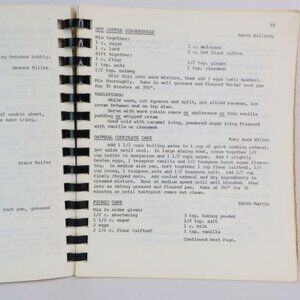 ing becomes bubbly.
Deanna Miller
d cookie sheet,
to make icing.
Grace Seiler
inch pan, greased
39
HOT COFFEE GINGERBREAD
Agnes Holliday
Mix together:
1 c. sugar
1 c. molasses
1 c. lard
1 c. hot black coffee
Sift together:
3 c. flour
1/2 tsp. ginger
1 tsp. soda
1 tsp. cinnamon
1/2 tsp. nutmeg
Stir this into warm mixture, then add 2 eggs (well beaten).
Mix thoroughly. Bake in well greased and floured 9x13x2 inch pan
for 35 minutes at 350°.
VARIATIONS:
While warm, cut squares and split, put sliced bananas, ice
cream between and on top also.
Serve with warm tart sauce or applesauce or thin vanilla
pudding or whipped cream
Good cold with caramel icing, powdered sugar icing flavored
with vanilla or cinnamon
OATMEAL CHOCOLATE CAKE
Mary Anne Wilson
Add 1 1/2 cups boiling water to 1 cup of quick cooking oatmeal.
Set aside until cool. In large mixing bowl, cream together 1/2
cup butter or margarine and 1 1/2 cups sugar. Add 2 slightly
beaten eggs, 1 teaspoon vanilla
together 1 cup flour,
1/2 cup cocoa, 1 teaspoon soda and 1/2 teaspoon salt. Add 1/2 cup
finely chopped nuts. Add cooled oatmeal and dry ingredients to
creamed mixture. Beat at medium speed until well blended. Pour
into an oblong greased and floured pan. Bake at 350° for 35
minutes or until toothpick comes out clean.
PICNIC CAKE
Edith Martin
Mix in order given:
1/2 c. shortening
3 tsp. baking powder
1 1/2 c. sugar
1/2 tsp. salt
2 eggs
1 c. milk
2 1/2 c. flour (sifted)
1 tsp. vanilla
Continued Next Page.